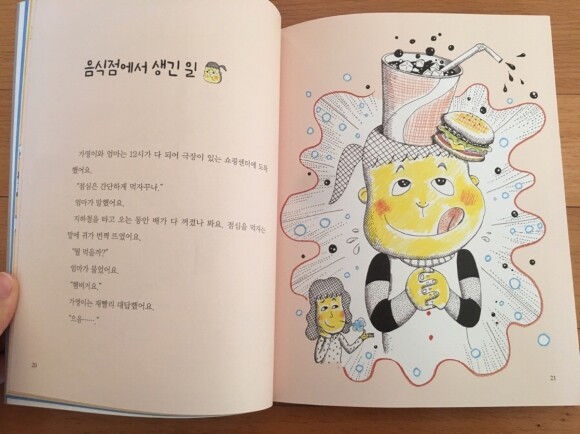 음식점에서 생긴 일
가영이와 엄마는 12시가 다 되어 극장이 있는 쇼핑센터에 도착
했어요.
"점심은 간단하게 먹자꾸나."
엄마가 말했어요.
지하철을 타고 오는 동안 배가 다 꺼졌나 봐요. 점심을 먹자는
말에 귀가 번쩍 뜨였어요.
"뭘 먹을까?"
엄마가 물었어요.
"햄버거요."
가영이는 재빨리 대답했어요.
"으음……."
20
21